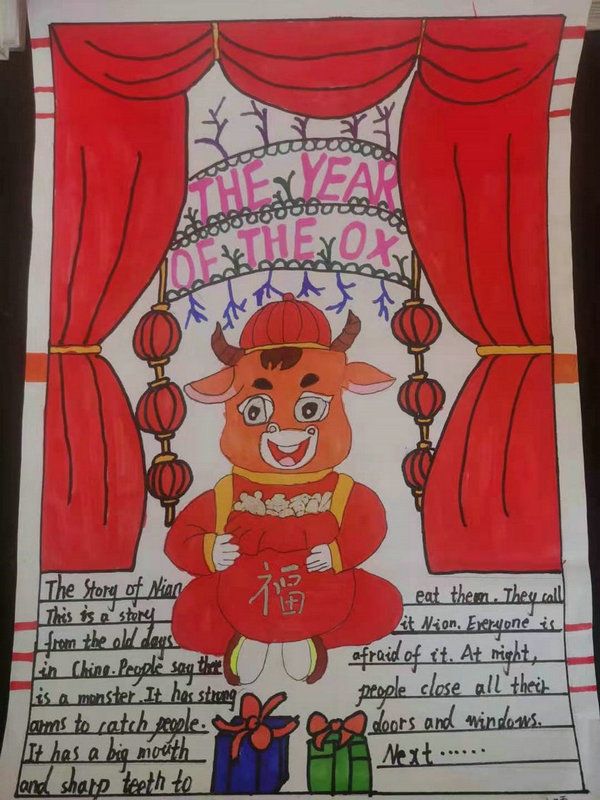 THE YEAR
OF THE OX
福
The Story of Nian
This is a story
from the old days
in China. People say there
is a monster. It has strong
arms to catch people.
It has a big mouth
and sharp teeth to
eat them. They call
it Nian. Everyone is
afraid of it. At night,
people close all their
doors and windows.
Next ......